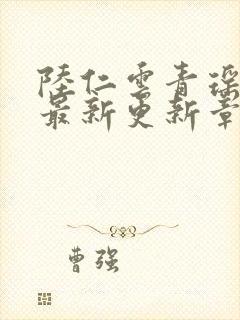 陸仁雲青瑶
最新更新章
曹强